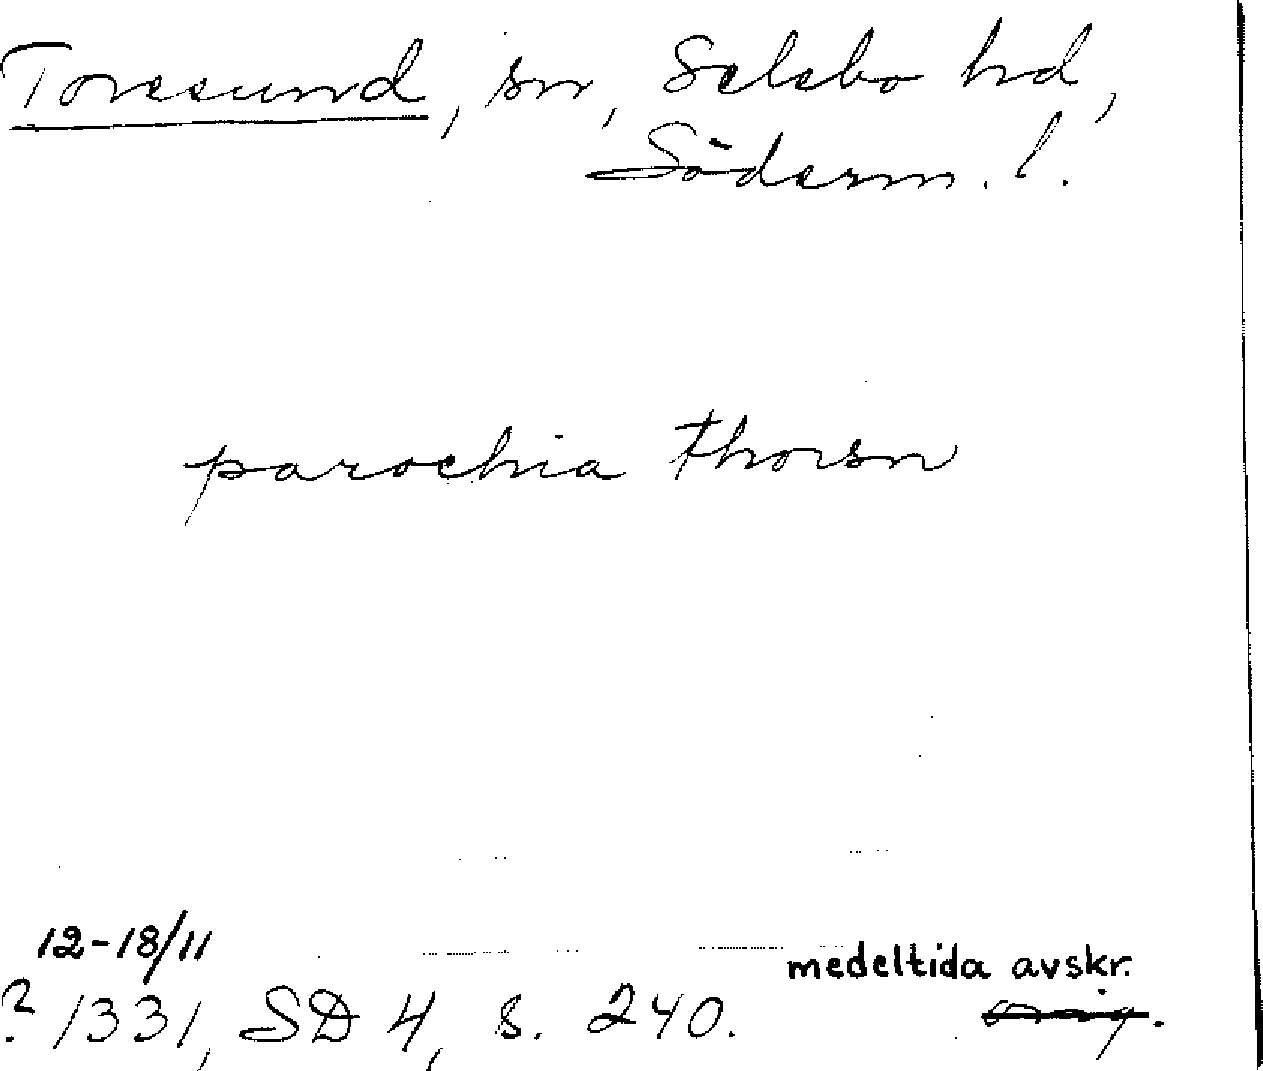 Toresund, sn, Selebo hd,
Söderm. l.
parochia thorsn
12-18/11
medeltida avskr.
? 1331, SD 4, s. 240.
orig.